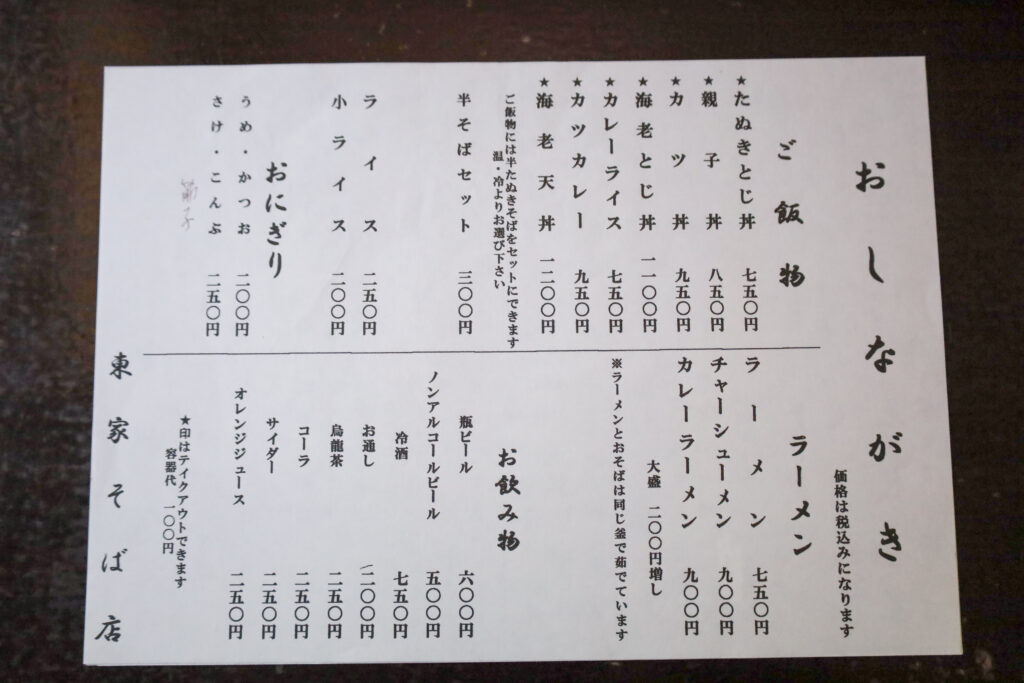 おしながき
価格は税込みになります
ご飯物
★たぬきとじ丼 七五〇円
★親子丼 八五〇円
★カツ丼 九五〇円
★海老とじ丼 一一〇〇円
★カレーライス 七五〇円
★カツカレー 九五〇円
★海老天丼 一二〇〇円
ご飯物には半たぬきそばをセットにできます
温・冷よりお選び下さい
半そばセット 三〇〇円
ライス 二五〇円
小ライス 二〇〇円
おにぎり
うめ・かつお 二〇〇円
さけ・こんぶ 二五〇円
ラーメン
ラーメン 七五〇円
チャーシューメン 九〇〇円
カレーラーメン 九〇〇円
大盛 二〇〇円増し
※ラーメンとおそばは同じ釜で茹でています
お飲み物
瓶ビール 六〇〇円
ノンアルコールビール 五〇〇円
冷酒 七五〇円
お通し 二〇〇円
烏龍茶 二五〇円
コーラ 二五〇円
サイダー 二五〇円
オレンジジュース 二五〇円
★印はテイクアウトできます
容器代 一〇〇円
東家そば店